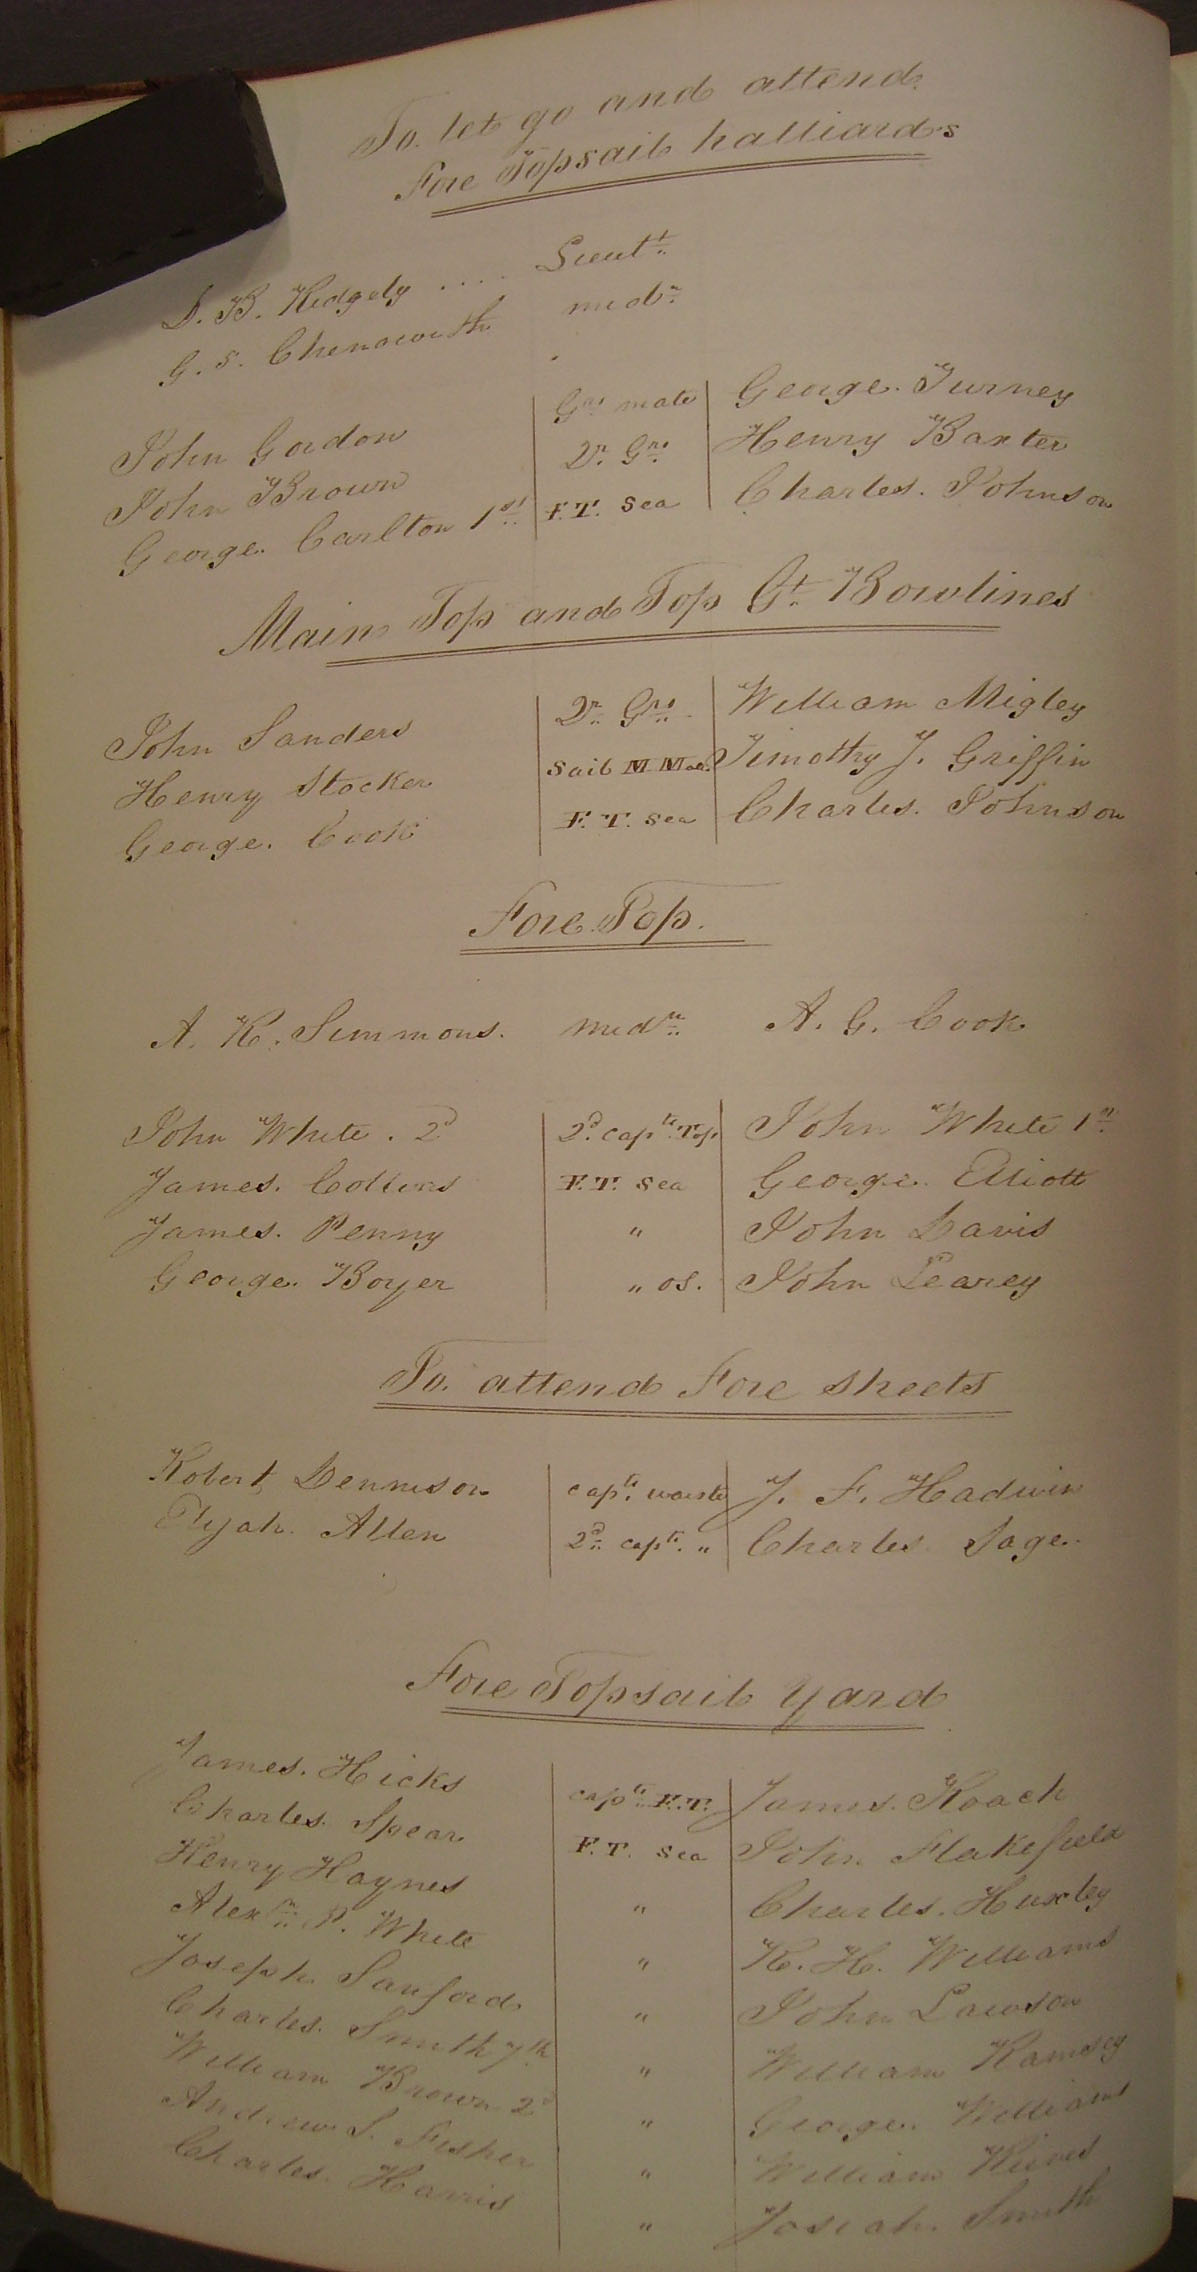 To let go and attend
Fore Topsail halliards
D. B. Ridgely .... Lieutt.
G. S. Chenoweth midn.
John Gordon Grs mate George Turney
John Brown Qr. Grs. Henry Baxter
George Carlton 1st. F.T. Sea Charles Johnson
Main Top and Top Gt. Bowlines
John Sanders Qr. Grs. William Migley
Henry Stocker Sail M Mate. Timothy J. Griffin
George Cook F.T. Sea Charles Johnson
Fore Top.
A. R. Simmons. midn. A. G. Cook
John White . 2d 2d. captn. Top John White 1st.
James Collins F.T. Sea George Elliott
James Penny " John Davis
George Boyer " os. John Learey
To attend Fore sheets
Robert Dennison captn. waist J. F. Hadwin
Elijah Allen 2d. captn. " Charles Sage
Fore Topsail Yard
James Hicks captn. F.T. James Roach
Charles Spear F.T. Sea John Flakefield
Henry Haynes " Charles Huxley
Alexr. P. White " R. H. Williams
Joseph Sanford " John Lawson
Charles Smith 7th " William Ramsey
William Brown 2d " George Williams
Andrew S. Fisher " William
Charles Harris " Josiah Smith